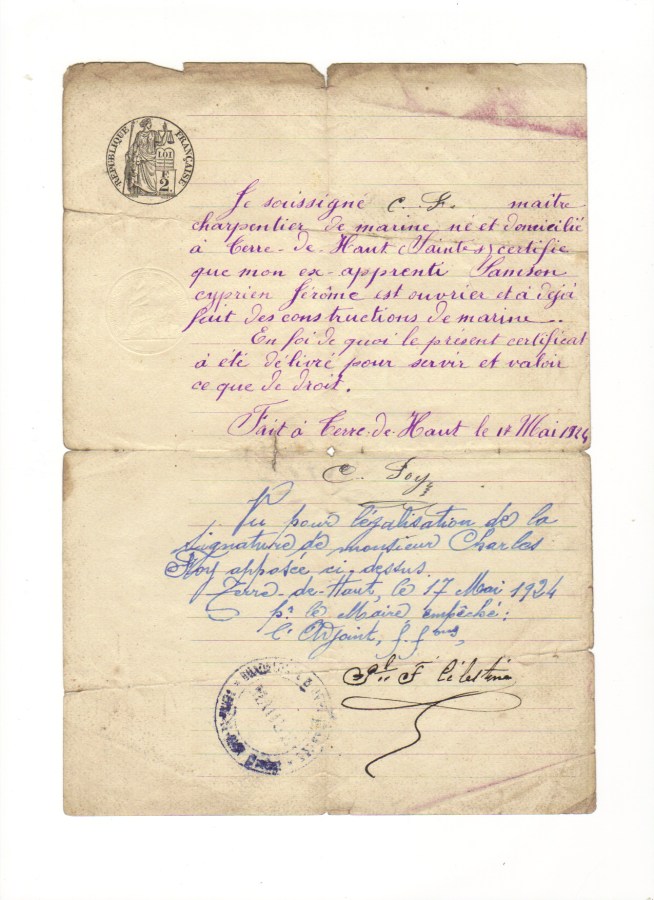 RÉPUBLIQUE FRANÇAISE
LOI
2
Je soussigné C. F. maître
charpentier de marine, né et domicilié
à Terre-de-Haut (Saintes) certifie
que mon ex-apprenti Samson
cyprien Jérôme est ouvrier et à déjà
fait des constructions de marine.
En foi de quoi le présent certificat
à été délivré pour servir et valoir
ce que de droit.
Fait à Terre-de-Haut le 17 Mai 1924
C. Foy
Vu pour légalisation de la
signature de monsieur Charles
Foy apposée ci-dessus
Terre-de-Haut, le 17 Mai 1924
pr. le Maire empêché:
l'Adjoint, f. fons,
F. Célestin